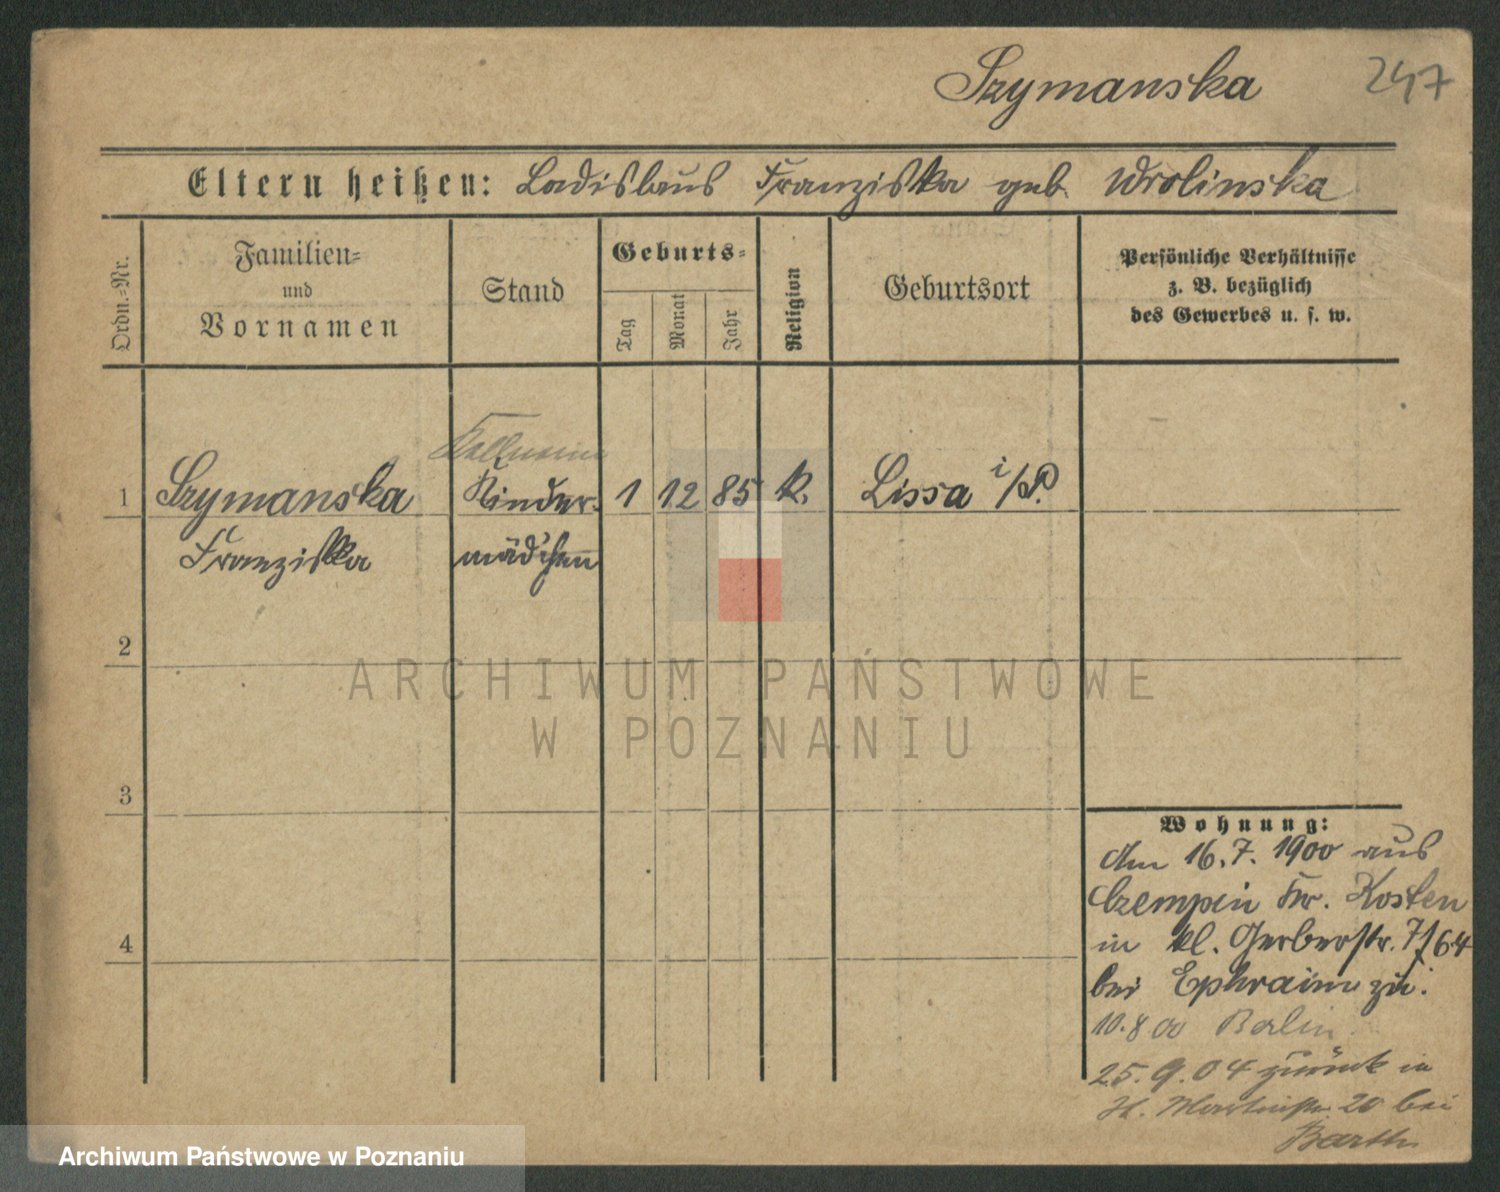 Szymanska 247
Eltern heißen: Ladislaus Franziska geb. Wrolinska
Ordn.-Nr.
Familien-
und
Vornamen
Stand
Geburts-
Tag
Monat
Jahr
Religion
Geburtsort
Persönliche Verhältnisse
z. B. bezüglich
des Gewerbes u. s. w.
1 Szymanska Kinder- 1 12 85 k. Lissa i/P.
Franziska mädchen
2
3
4
Wohnung:
Am 16.7. 1900 aus
Czempin Kr. Kosten
in kl. Gerberstr. 7/64
bei Ephraim zu.
10.8 00 Berlin.
25.9.04 zurück in
St. Martinstr. 20 bei
Barth
ARCHIWUM PAŃSTWOWE
W POZNANIU
Archiwum Państwowe w Poznaniu